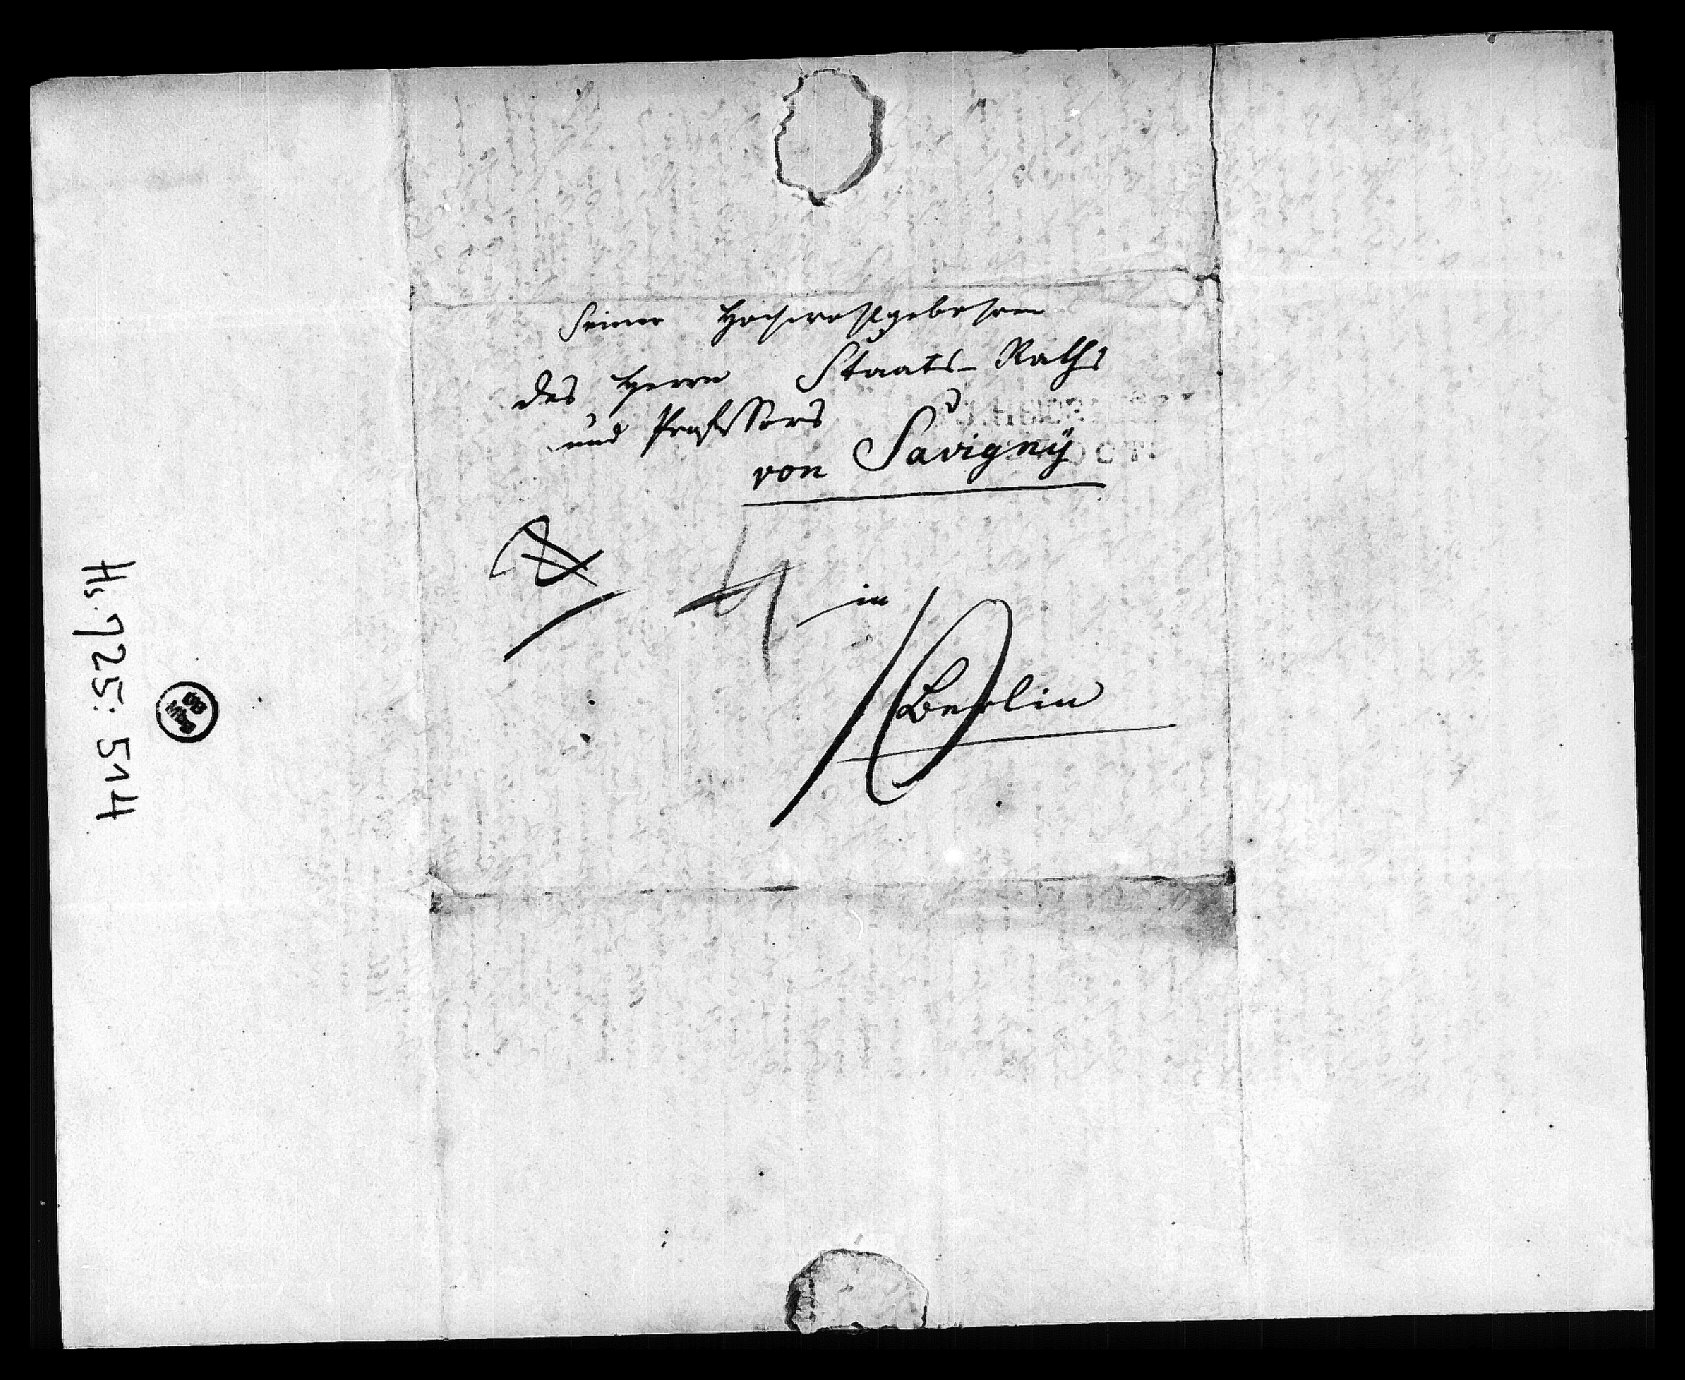 Seiner Hochwohlgeboren
des Herrn Staats-Raths
und Professors
von Savignÿ
4
in
10
Berlin
Hs. 725: 514
UB
Mbg